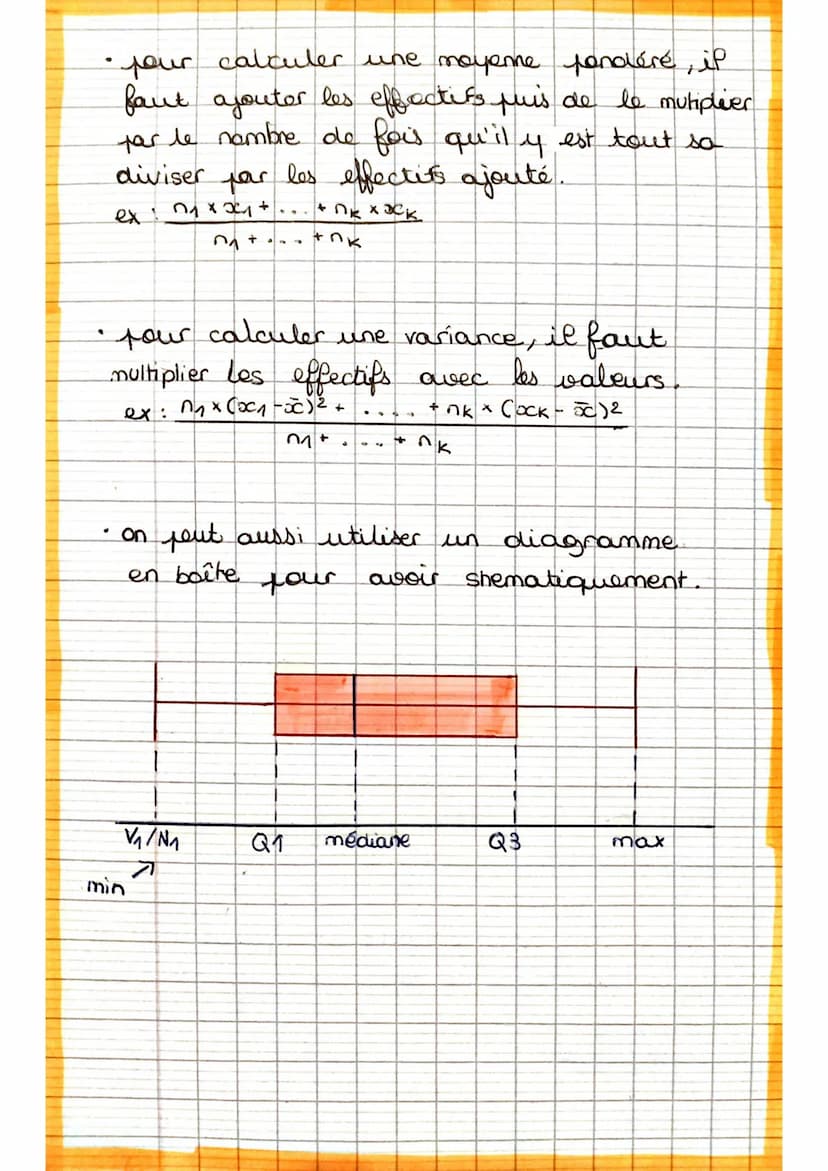 • pour calculer une moyenne pondéré, il
faut ajouter les effectifs puis de le mutiplier
par le nombre de fois qu'il y est tout sa
diviser par les effectifs ajouté.
ex : n1 × x1 + ... + nK × xK
n1 + .... + nK
• pour calculer une variance, il faut
multiplier les effectifs avec les valeurs.
ex : n1 × (x1 - x̄)2 + ..... + nK × (xK - x̄)2
n1 + .... + nK
• on peut aussi utiliser un diagramme
en boîte pour avoir shematiquement.
V1/N1 Q1 médiane Q3 max
min